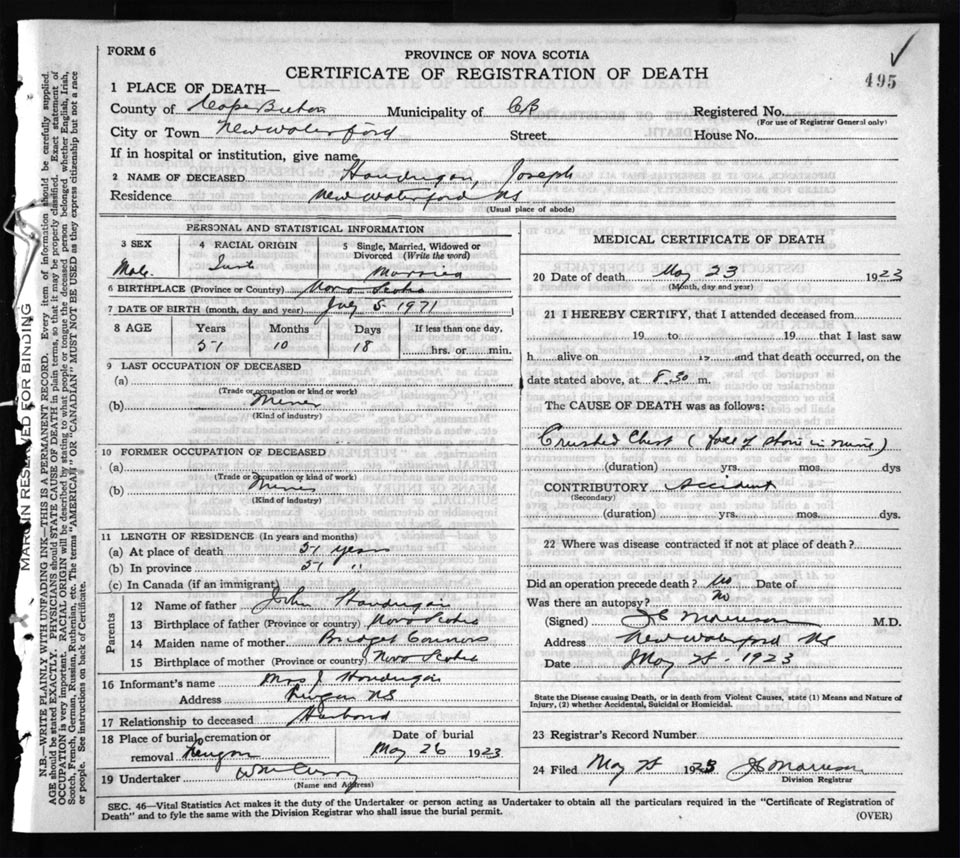 FORM 6
PROVINCE OF NOVA SCOTIA
CERTIFICATE OF REGISTRATION OF DEATH
495
1 PLACE OF DEATH—
County of Cape Breton Municipality of CB Registered No.
(For use of Registrar General only)
City or Town New Waterford Street House No.
If in hospital or institution, give name
2 NAME OF DECEASED Joseph
Residence New Waterford NS
(Usual place of abode)
PERSONAL AND STATISTICAL INFORMATION
3 SEX 4 RACIAL ORIGIN 5 Single, Married, Widowed or Divorced (Write the word)
Male Married
6 BIRTHPLACE (Province or Country) Nova Scotia
7 DATE OF BIRTH (month, day and year) July 5 1971
8 AGE Years Months Days If less than one day,
51 10 18 hrs. or min.
9 LAST OCCUPATION OF DECEASED
(a)
(Trade or occupation or kind of work)
(b) Miner
(Kind of industry)
10 FORMER OCCUPATION OF DECEASED
(a)
(Trade or occupation or kind of work)
(b)
(Kind of industry)
11 LENGTH OF RESIDENCE (In years and months)
(a) At place of death 51 years
(b) In province 51 "
(c) In Canada (if an immigrant)
Parents
12 Name of father John
13 Birthplace of father (Province or country) Nova Scotia
14 Maiden name of mother Bridget Connors
15 Birthplace of mother (Province or country) Nova Scotia
16 Informant's name Mrs J.
Address NS
17 Relationship to deceased Husband
18 Place of burial, cremation or removal Date of burial
May 26 1923
19 Undertaker Wm Curry
(Name and Address)
MEDICAL CERTIFICATE OF DEATH
20 Date of death May 23 1923
(Month, day and year)
21 I HEREBY CERTIFY, that I attended deceased from
19 to 19 that I last saw
h alive on 19 and that death occurred, on the
date stated above, at 8.30 m.
The CAUSE OF DEATH was as follows:
Crushed Chest (fall of stone in mine)
(duration) yrs. mos. dys
CONTRIBUTORY Accident
(Secondary)
(duration) yrs. mos. dys.
22 Where was disease contracted if not at place of death?
Did an operation precede death? No Date of
Was there an autopsy? No
(Signed) J C Morrison M.D.
Address New Waterford NS
Date May 1923
State the Disease causing Death, or in death from Violent Causes, state (1) Means and Nature of Injury, (2) whether Accidental, Suicidal or Homicidal.
23 Registrar's Record Number
24 Filed May 1923 J C Morrison
Division Registrar
SEC. 46—Vital Statistics Act makes it the duty of the Undertaker or person acting as Undertaker to obtain all the particulars required in the "Certificate of Registration of
Death" and to fyle the same with the Division Registrar who shall issue the burial permit.
(OVER)
MARGIN RESERVED FOR BINDING
N.B.—WRITE PLAINLY WITH UNFADING INK—THIS IS A PERMANENT RECORD. Every item of information should be carefully supplied.
AGE should be stated EXACTLY. PHYSICIANS should STATE CAUSE OF DEATH in plain terms, so that it may be properly classified. Exact statement of
OCCUPATION is very important. RACIAL ORIGIN will be described by stating to what people or tongue the deceased person belonged whether English, Irish,
Scotch, French, German, Russian, Ruthenian, etc. The terms "AMERICAN" OR "CANADIAN" MUST NOT BE USED as they express citizenship but not a race
or people. See instructions on back of Certificate.